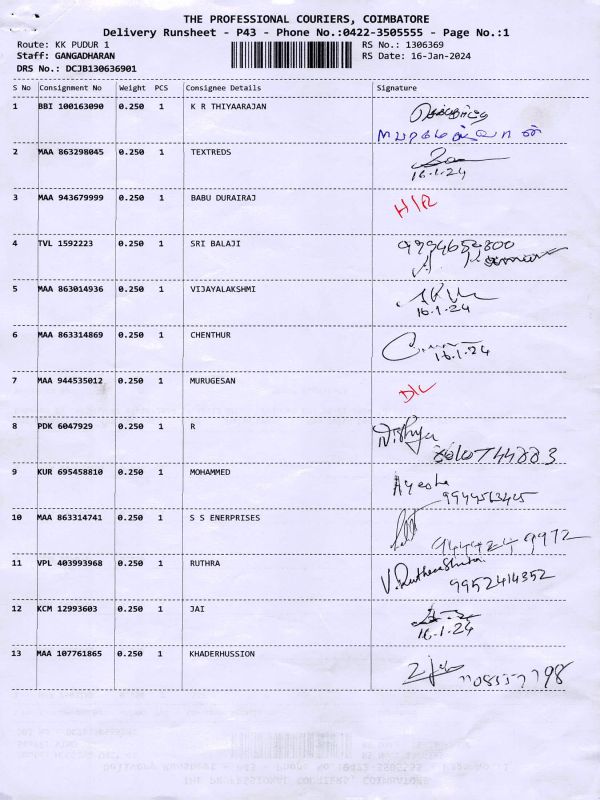 THE PROFESSIONAL COURIERS, COIMBATORE
Delivery Runsheet - P43 - Phone No.:0422-3505555 - Page No.:1
Route: KK PUDUR 1 RS No.: 1306369
Staff: GANGADHARAN RS Date: 16-Jan-2024
DRS No.: DCJB130636901
S No Consignment No Weight PCS Consignee Details Signature
1 BBI 100163090 0.250 1 K R THIYAARAJAN
2 MAA 863298045 0.250 1 TEXTREDS
16.1.24
3 MAA 943679999 0.250 1 BABU DURAIRAJ
4 TVL 1592223 0.250 1 SRI BALAJI 9994652800
5 MAA 863014936 0.250 1 VIJAYALAKSHMI
16.1.24
6 MAA 863314869 0.250 1 CHENTHUR
16.1.24
7 MAA 944535012 0.250 1 MURUGESAN D/L
8 PDK 6047929 0.250 1 R Nithya
9 KUR 695458810 0.250 1 MOHAMMED Ayesha
10 MAA 863314741 0.250 1 S S ENERPRISES
9444249972
11 VPL 403993968 0.250 1 RUTHRA
9952414352
12 KCM 12993603 0.250 1 JAI
16.1.24
13 MAA 107761865 0.250 1 KHADERHUSSION